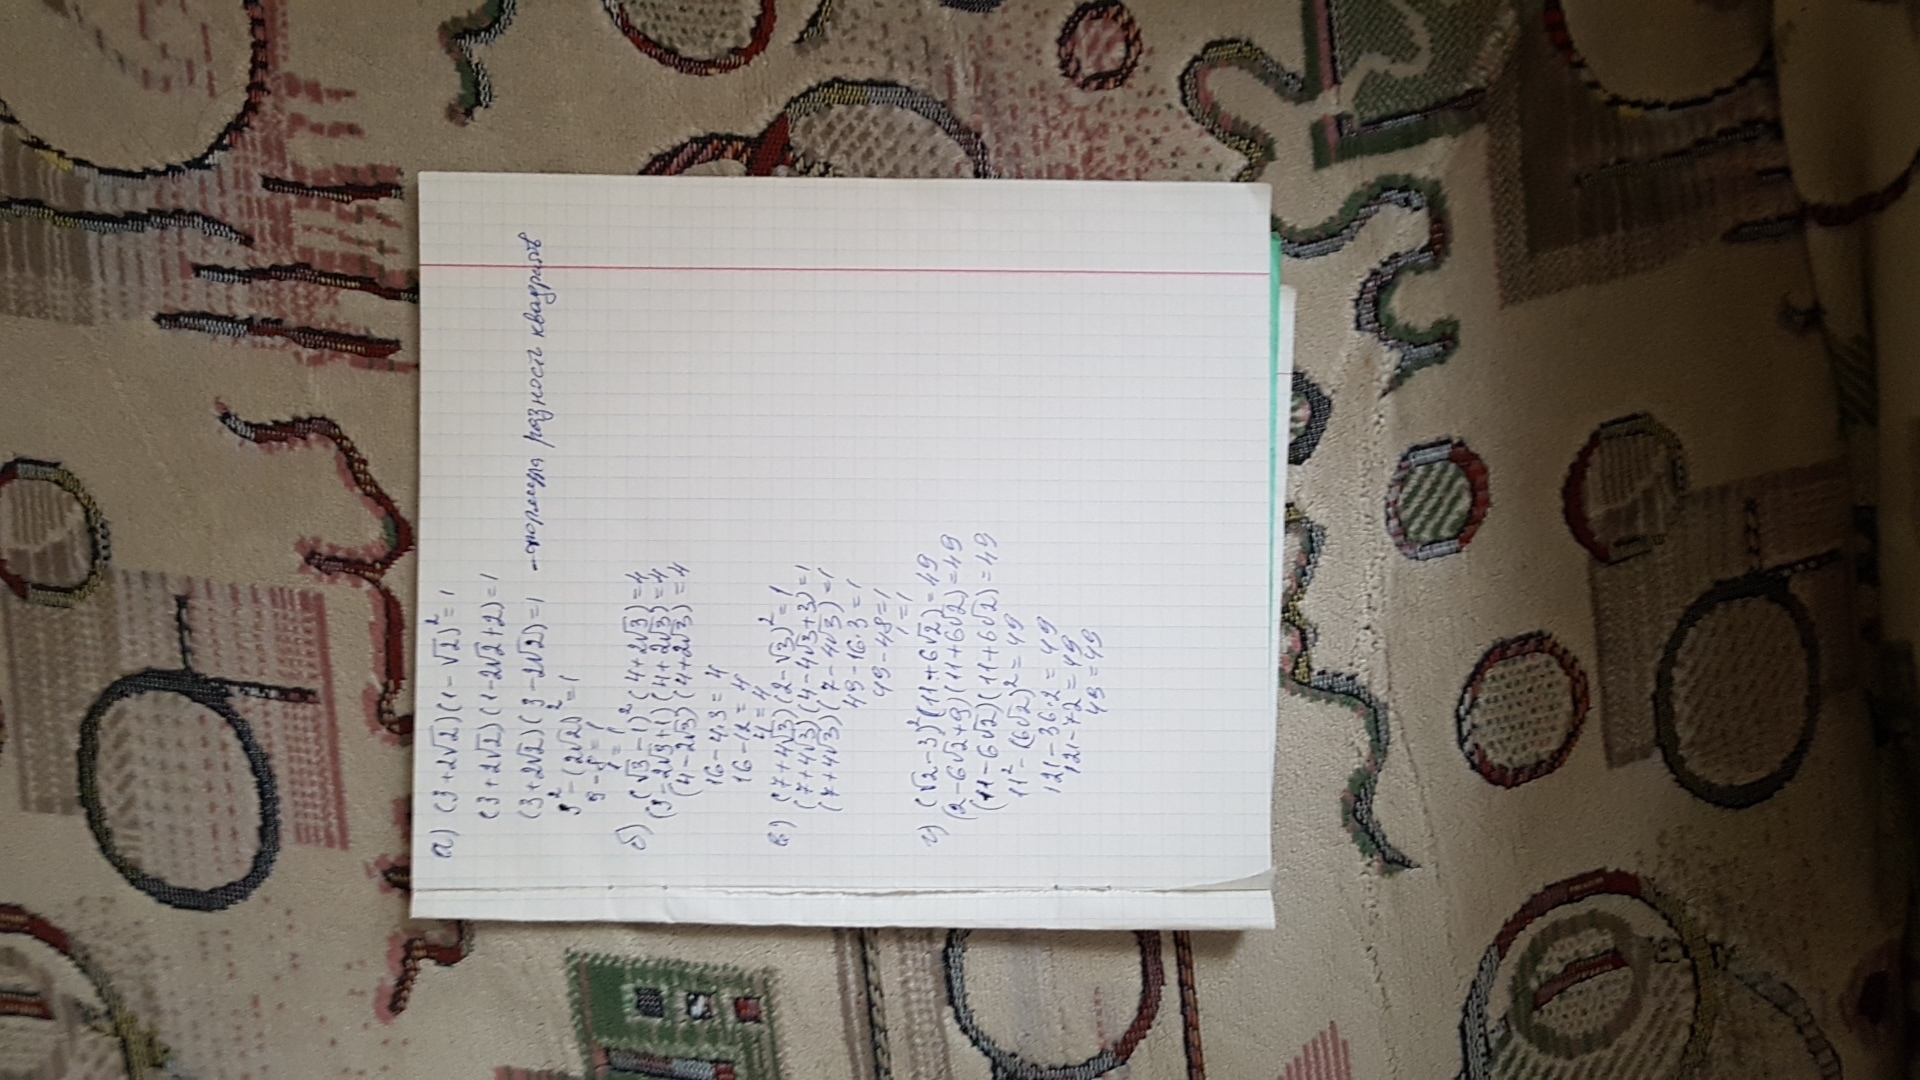 а) (3+2√2)(1-√2)²=1
(3+2√2)(1-2√2+2)=1
(3+2√2)(3-2√2)=1 - формула разность квадратов
3²-(2√2)²=1
9-8=1
1=1
б) (√3-1)²(4+2√3)=4
(3-2√3+1)(4+2√3)=4
(4-2√3)(4+2√3)=4
16-4·3=4
16-12=4
4=4
в) (7+4√3)(2-√3)²=1
(7+4√3)(4-4√3+3)=1
(7+4√3)(7-4√3)=1
49-16·3=1
49-48=1
1=1
г) (√2-3)²(11+6√2)=49
(2-6√2+9)(11+6√2)=49
(11-6√2)(11+6√2)=49
11²-(6√2)²=49
121-36·2=49
121-72=49
49=49